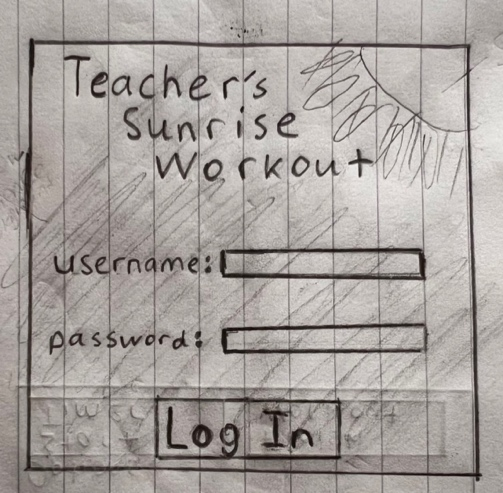 Teacher's
Sunrise
Workout
username:
password:
Log In